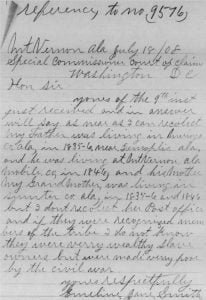 refrency to no 9576
Mt Vernon Ala July 18/08
Special Commissioner Court of claim
Washington D C
Hon Sir
yours of the 9th inst
just received and in answer
will say as near as I can recolect
my father was living in
co ala, in 1835-6 near ala,
and he was living at Mt Vernon ala
Mobile co, in 1846, and his Mother
my Grand Mother, was living in
Sumter co ala, in 1835-6 and 1846
but I dont recolect her Post office
and if they were recognised mem
bers of the tribe I do not know
they were verry wealthy slave
owners but were made very poor
by the civil war
yours respectfully
Emeline Jane Smith